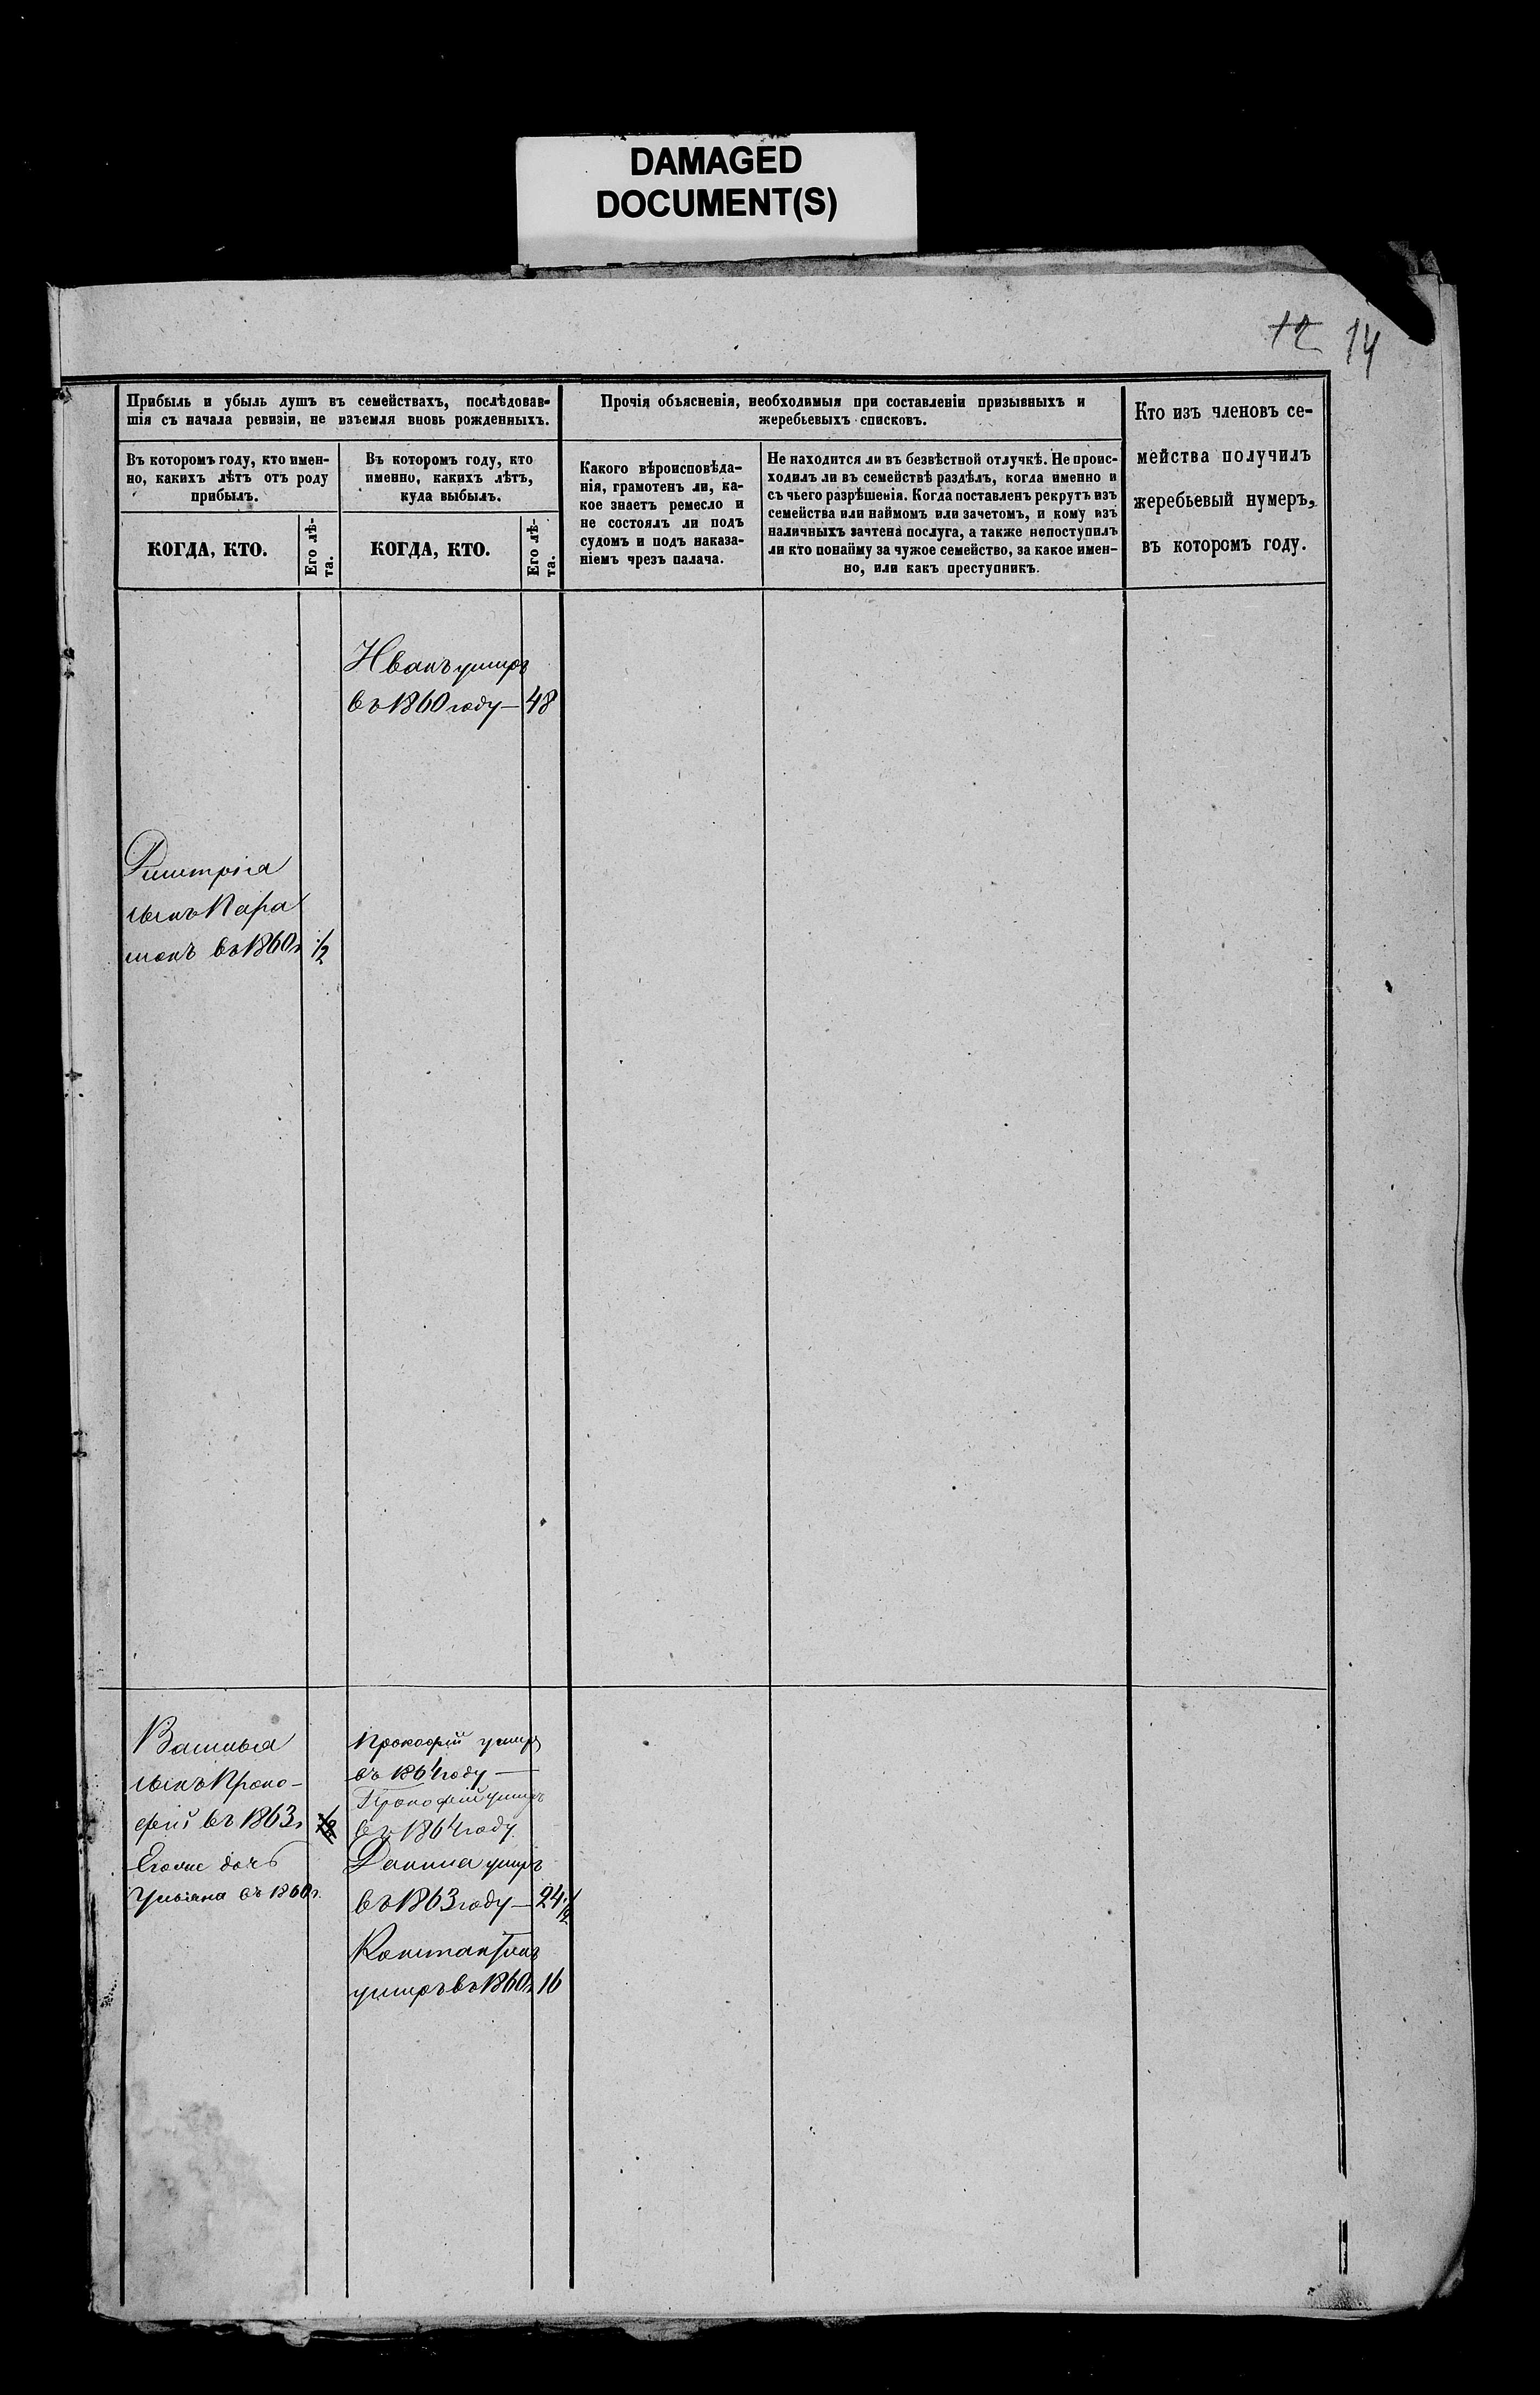 DAMAGED
DOCUMENT(S)
12 14
Прибыль и убыль душъ въ семействахъ, послѣдовав-
шія съ начала ревизіи, не изъемля вновь рожденныхъ.
Въ которомъ году, кто имен-
но, какихъ лѣтъ отъ роду
прибылъ.
КОГДА, КТО.
Его лѣ-
та.
Въ которомъ году, кто
именно, какихъ лѣтъ,
куда выбылъ.
КОГДА, КТО.
Его лѣ-
та.
Прочія объясненія, необходимыя при составленіи призывныхъ и
жеребьевыхъ списковъ.
Какого вѣроисповѣда-
нія, грамотенъ ли, ка-
кое знаетъ ремесло и
не состоялъ ли подъ
судомъ и подъ наказа-
ніемъ чрезъ палача.
Не находится ли въ безвѣстной отлучкѣ. Не проис-
ходилъ ли въ семействѣ раздѣлъ, когда именно и
съ чьего разрѣшенія. Когда поставленъ рекрутъ изъ
семейства или наймомъ или зачетомъ, и кому изъ
наличныхъ зачтена послуга, а также непоступилъ
ли кто понайму за чужое семейство, за какое имен-
но, или какъ преступникъ.
Кто изъ членовъ се-
мейства получилъ
жеребьевый нумеръ,
въ которомъ году.
Иванъ умиръ
въ 1860 году — 48
Димтрія
сынъ Пара
монъ въ 1860 г 1/2
Василья
сынъ Проко-
фій въ 1863 г 1/2
дочь
Ульяна въ 1860 г.
Прокофій умиръ
въ 1864 году —
Прокофій умиръ
въ 1864 году.
Данила умиръ
въ 1863 году — 24 1/2
Константинъ
умиръ въ 1860 г 16